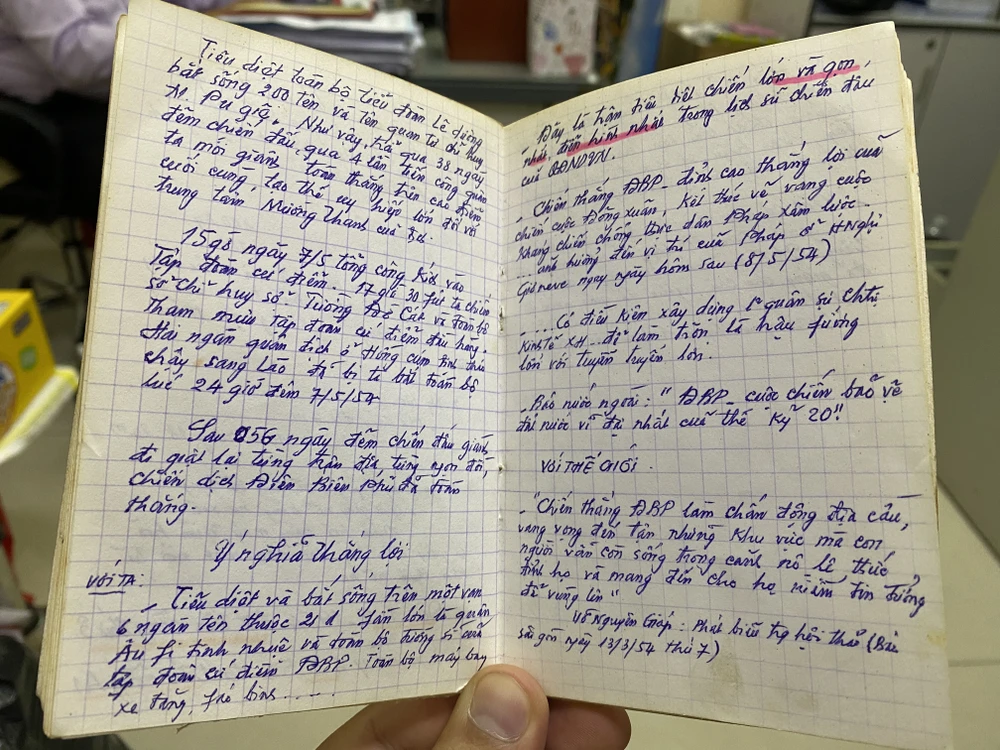 Tiêu diệt toàn bộ tiểu đoàn lê dương
bắt sống 200 tên và tên quan tư chỉ huy
M. Pu giê. Như vậy, trải qua 38 ngày
đêm chiến đấu, qua 4 lần tiến công quân
ta mới giành toàn thắng trên cao điểm
cuối cùng, tạo thế uy hiếp lớn đối với
trung tâm Mường Thanh của
15giờ ngày 7/5 tổng công kích vào
Tập đoàn cứ điểm. 17 giờ 30 fút ta chiếm
sở chỉ huy số Tướng Đờ Cát và toàn bộ
Tham mưu tập đoàn cứ điểm đầu hàng.
Hai ngàn quân địch ở Hồng cúm
chạy sang Lào đã bị ta bắt toàn bộ
lúc 24 giờ đêm 7/5/54
Sau 56 ngày đêm chiến đấu giành
đi giật lại từng trận địa, từng ngọn đồi,
chiến dịch Điện Biên Phủ đã toàn
thắng.
Ý nghĩa thắng lợi
VỚI TA:
_ Tiêu diệt và bắt sống trên một vạn
6 ngàn tên thuộc 21 d fần lớn là quân
Âu fi tinh nhuệ và toàn bộ tướng sĩ của
tập đoàn cứ điểm ĐBP. Toàn bộ máy bay
xe tăng, fáo binh.....
- Đây là trận tiêu diệt chiến lớn và gọn
nhất, điển hình nhất trong lịch sử chiến đấu
của QĐNDVN.
- Chiến thắng ĐBP_ đỉnh cao thắng lợi của
chiến cuộc Đông xuân, kết thúc vẻ vang cuộc
kháng chiến chống thực dân Pháp xâm lược.
... ảnh hưởng đến vị trí của Pháp ở HNghị
Giơneve ngay ngày hôm sau (8/5/54)
-.... Có điều kiện xây dựng quân sự chtrị
kinhtế XH... để làm tròn là hậu fương
lớn với tuyền tuyến lớn.
_ Báo nước ngoài: "ĐBP_ cuộc chiến bảo vệ
đất nước vĩ đại nhất của thế kỷ 20"
VỚI THẾ GIỚI.
- "Chiến thắng ĐBP làm chấn động địa cầu,
vang vọng đến tận những khu vực mà con
người vẫn còn sống trong cảnh nô lệ, thức
tỉnh họ và mang đến cho họ niềm tin tưởng
để vùng lên"
Võ Nguyên Giáp: Phát biểu tại hội thảo (Báo
sài gòn ngày 13/3/54 thứ 7)